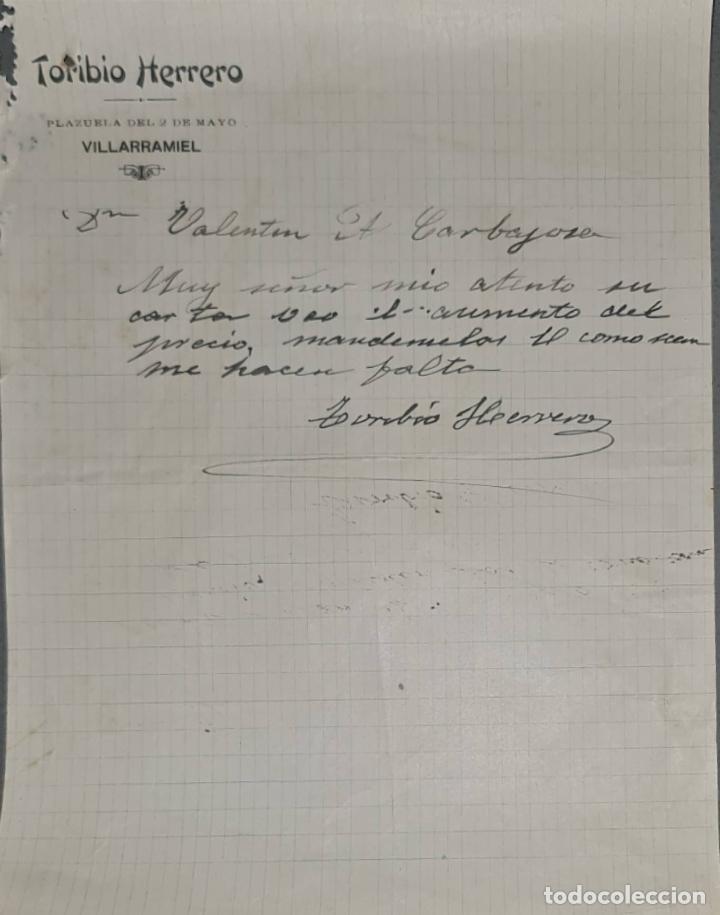 Toribio Herrero
PLAZUELA DEL 2 DE MAYO
VILLARRAMIEL
Dn Valentin A Carbajosa
Muy señor mio atento su
carta veo el aumento del
precio, mandemelos como sean
me hacen falta
Toribio Herrero
todocoleccion